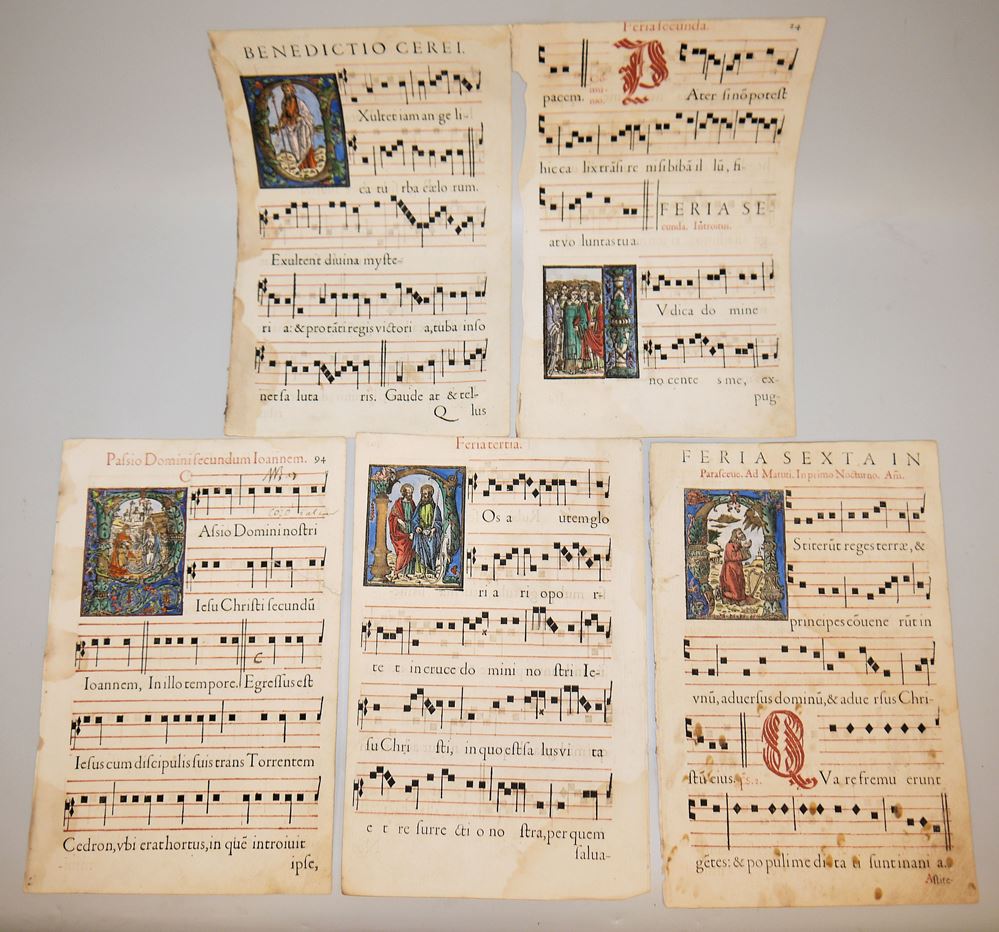 BENEDICTIO CEREI.
Xultet iam an ge li-
ca tu rba cælo rum.
Exultent diuina myste-
ri a: & pro tāti regis victori a, tuba inso
net sa luta ris. Gaude at & tel-
Q lus
Feria secunda. 24
pacem. Co mu- nio. P Ater si nō potest
hic ca lix trāsi re nisi bibā il lū, fi-
at vo luntas tua. FERIA SE-
cunda. Introitus.
Vdica do mine
no cente s me, ex-
pug-
Passio Domini secundum Ioannem. 94
C
Assio Domini nostri
Iesu Christi secundū
Ioannem, In illo tempore. Egressus est
C
Iesus cum discipulis suis trans Torrentem
Cedron, vbi erat hortus, in quē introiuit
ipse,
Feria tertia.
Os a utem glo
ri a ri opo r-
te t in cruce do mini no stri Ie-
su Chri sti, in quo est sa lus vi ta
e t re surre cti o no stra, per quem
salua-
FERIA SEXTA IN
Parasceue. Ad Matuti. In primo Nocturno. Añ.
Stiterūt reges terræ, &
principes cōuene rūt in
vnū, aduersus dominū, & adue rsus Chri-
stū eius. ps. 2. Q Va re fremu erunt
gētes: & po puli me di ta ti sunt inani a.
Astite-